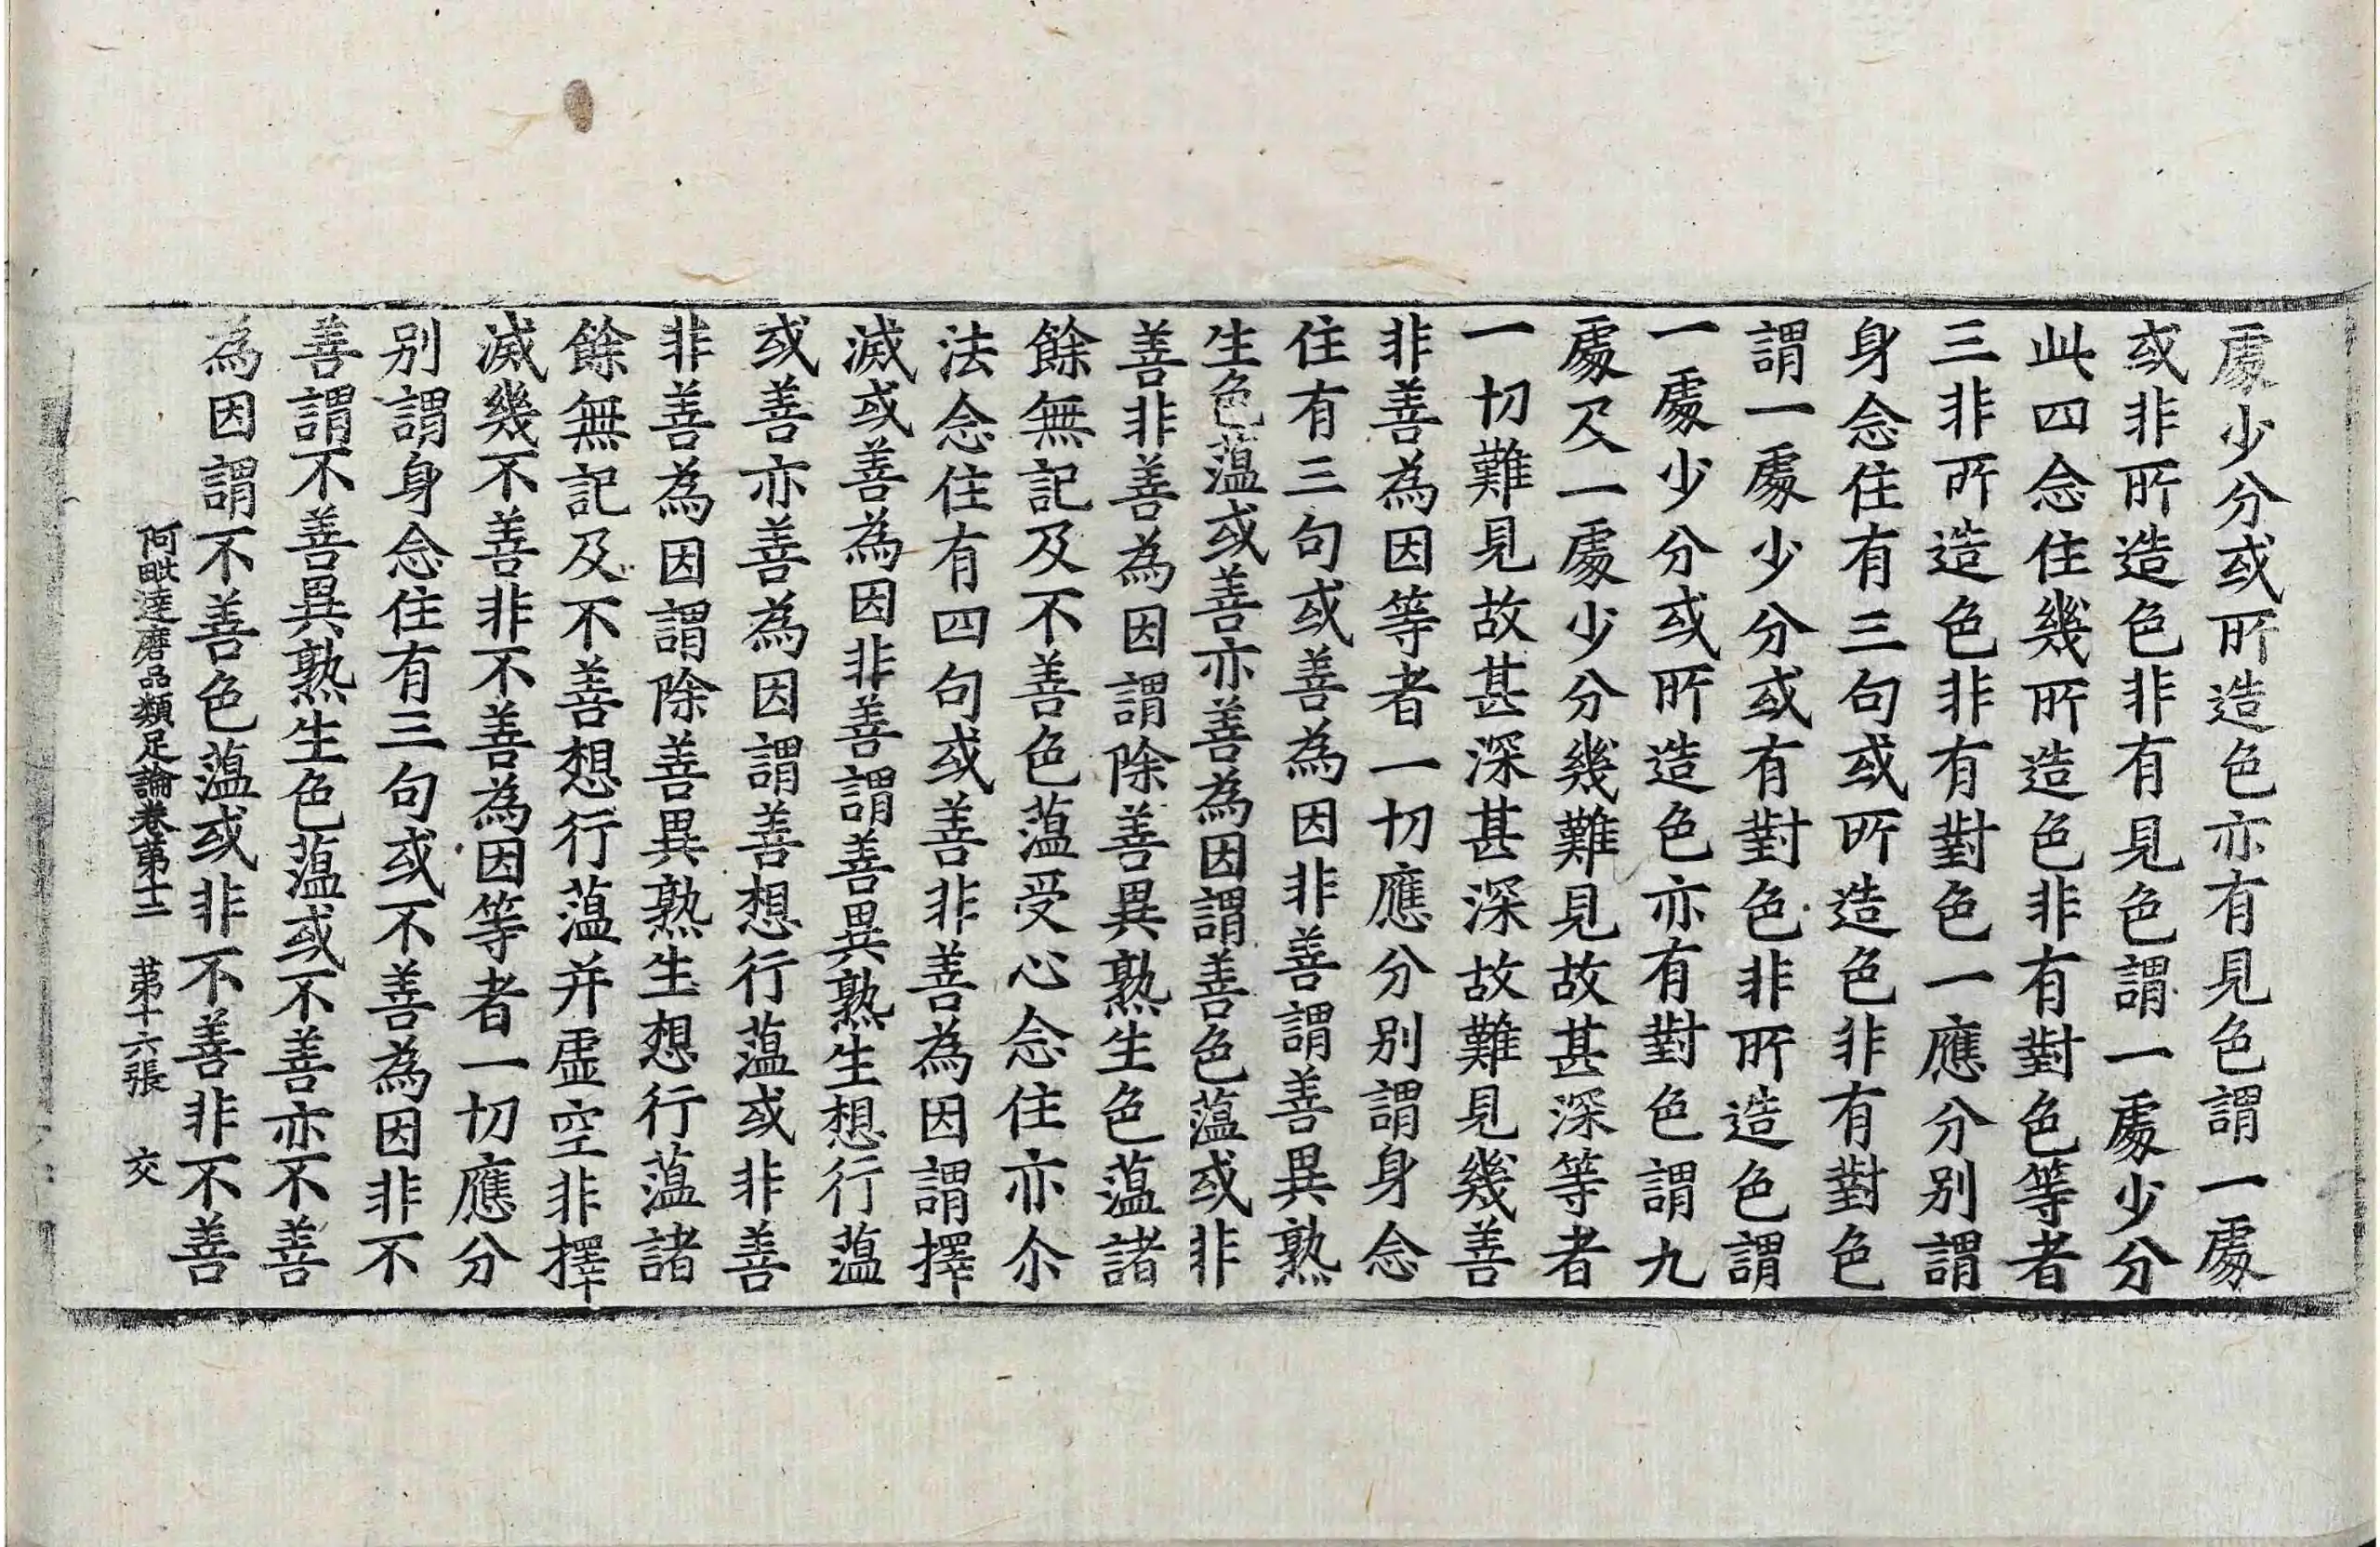 處少分或所造色亦有見色謂一處
或非所造色非有見色謂一處少分
此四念住幾所造色非有對色等者
三非所造色非有對色一應分別謂
身念住有三句或所造色非有對色
謂一處少分或有對色非所造色謂
一處少分或所造色亦有對色謂九
處及一處少分幾難見故甚深等者
一切難見故甚深甚深故難見幾善
非善為因等者一切應分別謂身念
住有三句或善為因非善謂善異熟
生色蕰或善亦善為因謂善色蕰或非
善非善為因謂除善異熟生色蕰諸
餘無記及不善色蕰受心念住亦尒
法念住有四句或善非善為因謂擇
滅或善為因非善謂善異熟生想行蕰
或善亦善為因謂善想行蕰或非善
非善為因謂除善異熟生想行蕰諸
餘無記及不善想行蕰并虛空非擇
滅幾不善非不善為因等者一切應分
別謂身念住有三句或不善為因非不
善謂不善異熟生色蕰或不善亦不善
為因謂不善色蕰或非不善非不善
阿毗達磨品類足論卷第十二 第十六張 交